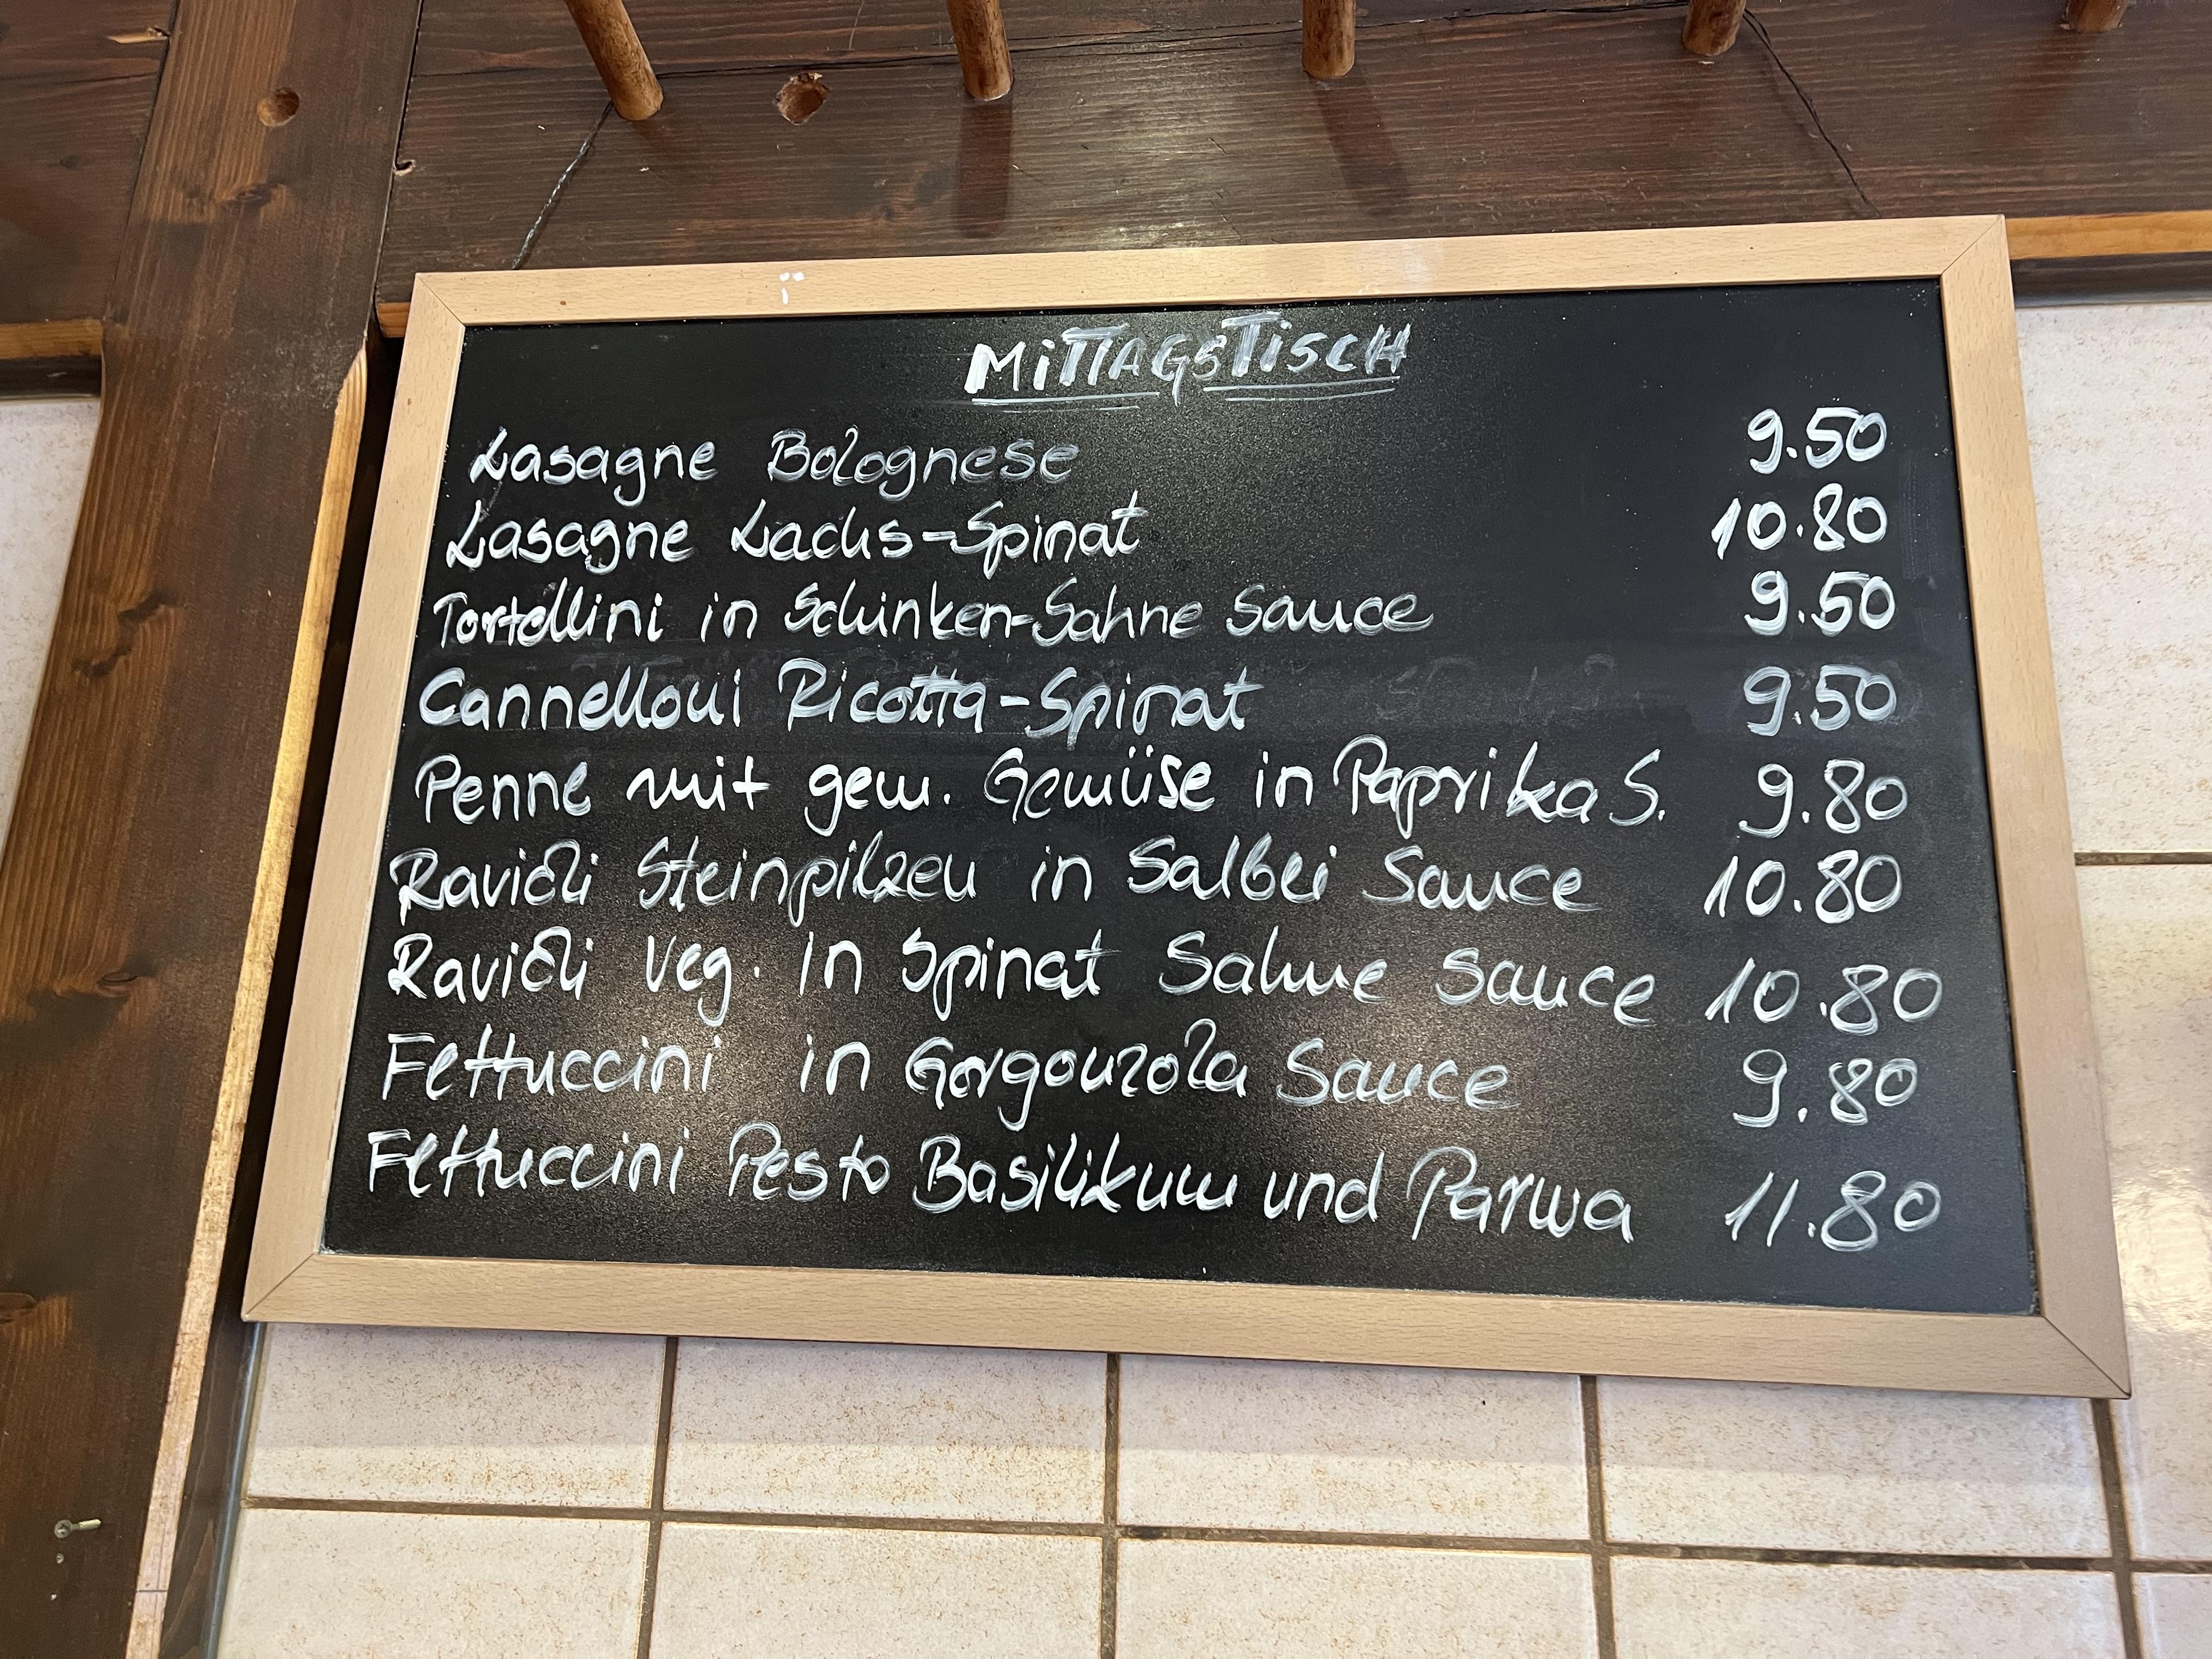 MITTAGSTISCH
Lasagne Bolognese 9.50
Lasagne Lachs-Spinat 10.80
Tortellini in Schinken-Sahne Sauce 9.50
Cannelloni Ricotta-Spinat 9.50
Penne mit gem. Gemüse in Paprika S. 9.80
Ravioli Steinpilzen in Salbei Sauce 10.80
Ravioli Veg. In Spinat Sahne Sauce 10.80
Fettuccini in Gorgonzola Sauce 9.80
Fettuccini Pesto Basilikum und Parma 11.80